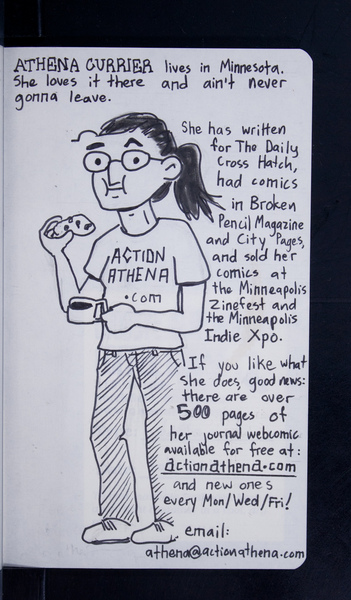 ATHENA CURRIER lives in Minnesota.
She loves it there and ain't never
gonna leave.
She has written
for The Daily
Cross Hatch,
had comics
in Broken
Pencil Magazine
and City Pages,
and sold her
comics at
the Minneapolis
Zinefest and
the Minneapolis
Indie Xpo.
ACTION
ATHENA
.com
If you like what
she does, good news:
there are over
500 pages of
her journal webcomic
available for free at:
actionathena.com
and new ones
every Mon/Wed/Fri!
email:
athena@actionathena.com